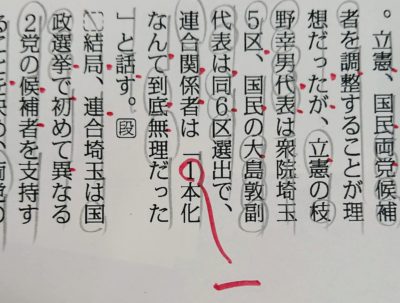 。立憲、国民両党候補
者を調整することが理
想だったが、立憲の枝
野幸男代表は衆院埼玉
5区、国民の大島敦副
代表は同6区選出で、
連合関係者は「1本化
一
なんて到底無理だった
」と話す。段
結局、連合埼玉は国
政選挙で初めて異なる
2党の候補者を支持す